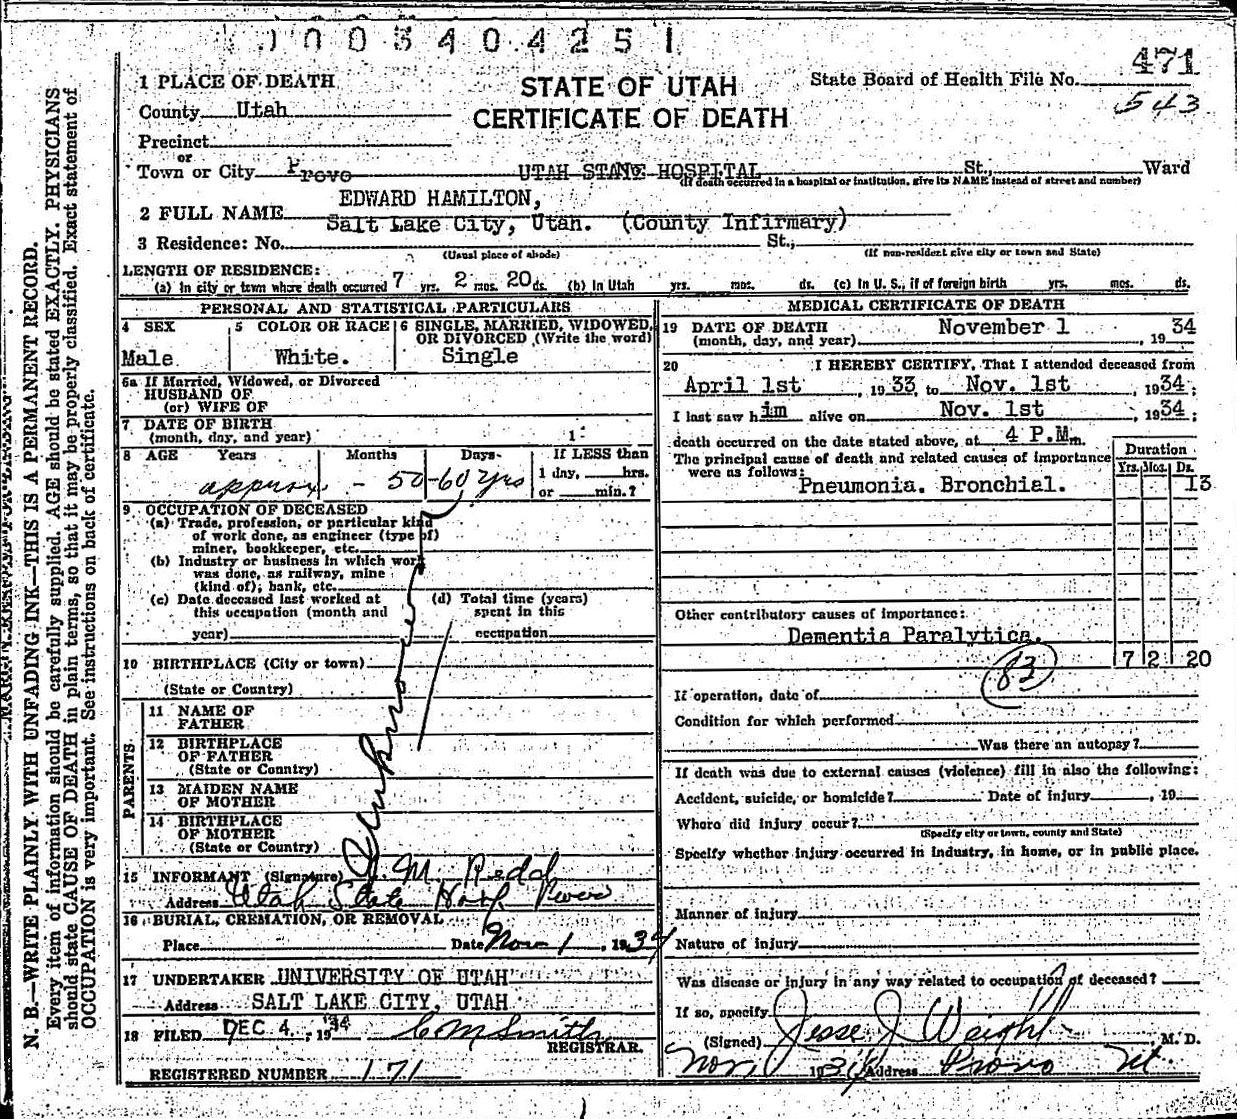 1003404251
STATE OF UTAH
CERTIFICATE OF DEATH
State Board of Health File No. 471
543
1 PLACE OF DEATH
County Utah
Precinct
or
Town or City Provo UTAH STATE HOSPITAL St., Ward
(If death occurred in a hospital or institution, give its NAME instead of street and number)
2 FULL NAME EDWARD HAMILTON,
Salt Lake City, Utah. (County Infirmary)
3 Residence: No. St.,
(Usual place of abode) (If non-resident give city or town and State)
LENGTH OF RESIDENCE:
(a) In city or town where death occurred 7 yrs. 2 mos. 20 ds. (b) In Utah yrs. mos. ds. (c) In U. S., if of foreign birth yrs. mos. ds.
PERSONAL AND STATISTICAL PARTICULARS
4 SEX 5 COLOR OR RACE 6 SINGLE, MARRIED, WIDOWED, OR DIVORCED (Write the word)
Male White. Single
6a If Married, Widowed, or Divorced
HUSBAND OF
(or) WIFE OF
7 DATE OF BIRTH
(month, day, and year) 1
8 AGE Years Months Days If LESS than
1 day, hrs.
or min.?
approx - 50-60 yrs
9 OCCUPATION OF DECEASED
(a) Trade, profession, or particular kind
of work done, as engineer (type of)
miner, bookkeeper, etc.
(b) Industry or business in which work
was done, as railway, mine
(kind of); bank, etc.
(c) Date deceased last worked at
this occupation (month and
year)
(d) Total time (years)
spent in this
occupation
10 BIRTHPLACE (City or town)
(State or Country)
PARENTS
11 NAME OF
FATHER
12 BIRTHPLACE
OF FATHER
(State or Country)
13 MAIDEN NAME
OF MOTHER
14 BIRTHPLACE
OF MOTHER
(State or Country)
Unknown
15 INFORMANT (Signature) J. M. Redd
Address Utah State Hosp Provo
16 BURIAL, CREMATION, OR REMOVAL
Place Date Nov 1, 1934
17 UNDERTAKER UNIVERSITY OF UTAH
Address SALT LAKE CITY, UTAH
18 FILED DEC 4, 1934 C M Smith
REGISTRAR.
REGISTERED NUMBER 171
MEDICAL CERTIFICATE OF DEATH
19 DATE OF DEATH
(month, day, and year) November 1, 1934
20 I HEREBY CERTIFY, That I attended deceased from
April 1st, 1933, to Nov. 1st, 1934;
I last saw him alive on Nov. 1st, 1934;
death occurred on the date stated above, at 4 P.M. m.
The principal cause of death and related causes of importance
were as follows:
Duration
Yrs. Mos. Ds.
Pneumonia. Bronchial. 13
Other contributory causes of importance:
Dementia Paralytica.
7 2 20
83
If operation, date of
Condition for which performed
Was there an autopsy?
If death was due to external causes (violence) fill in also the following:
Accident, suicide, or homicide? Date of injury, 19
Where did injury occur?
(Specify city or town, county and State)
Specify whether injury occurred in industry, in home, or in public place.
Manner of injury
Nature of injury
Was disease or injury in any way related to occupation of deceased?
If so, specify
(Signed) Jesse J Weight, M. D.
Nov 1 1934 Address Provo Ut
N. B.—WRITE PLAINLY WITH UNFADING INK—THIS IS A PERMANENT RECORD.
Every item of information should be carefully supplied. AGE should be stated EXACTLY. PHYSICIANS
should state CAUSE OF DEATH in plain terms, so that it may be properly classified. Exact statement of
OCCUPATION is very important. See instructions on back of certificate.